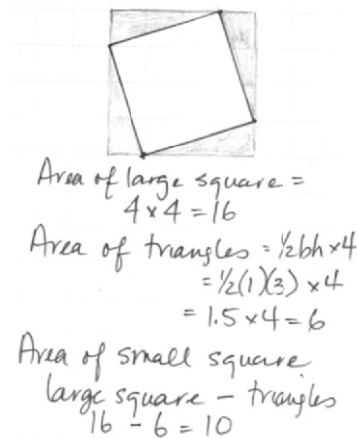 Area of large square =
4 × 4 = 16
Area of triangles = ½bh × 4
= ½(1)(3) × 4
= 1.5 × 4 = 6
Area of small square
large square – triangles
16 - 6 = 10